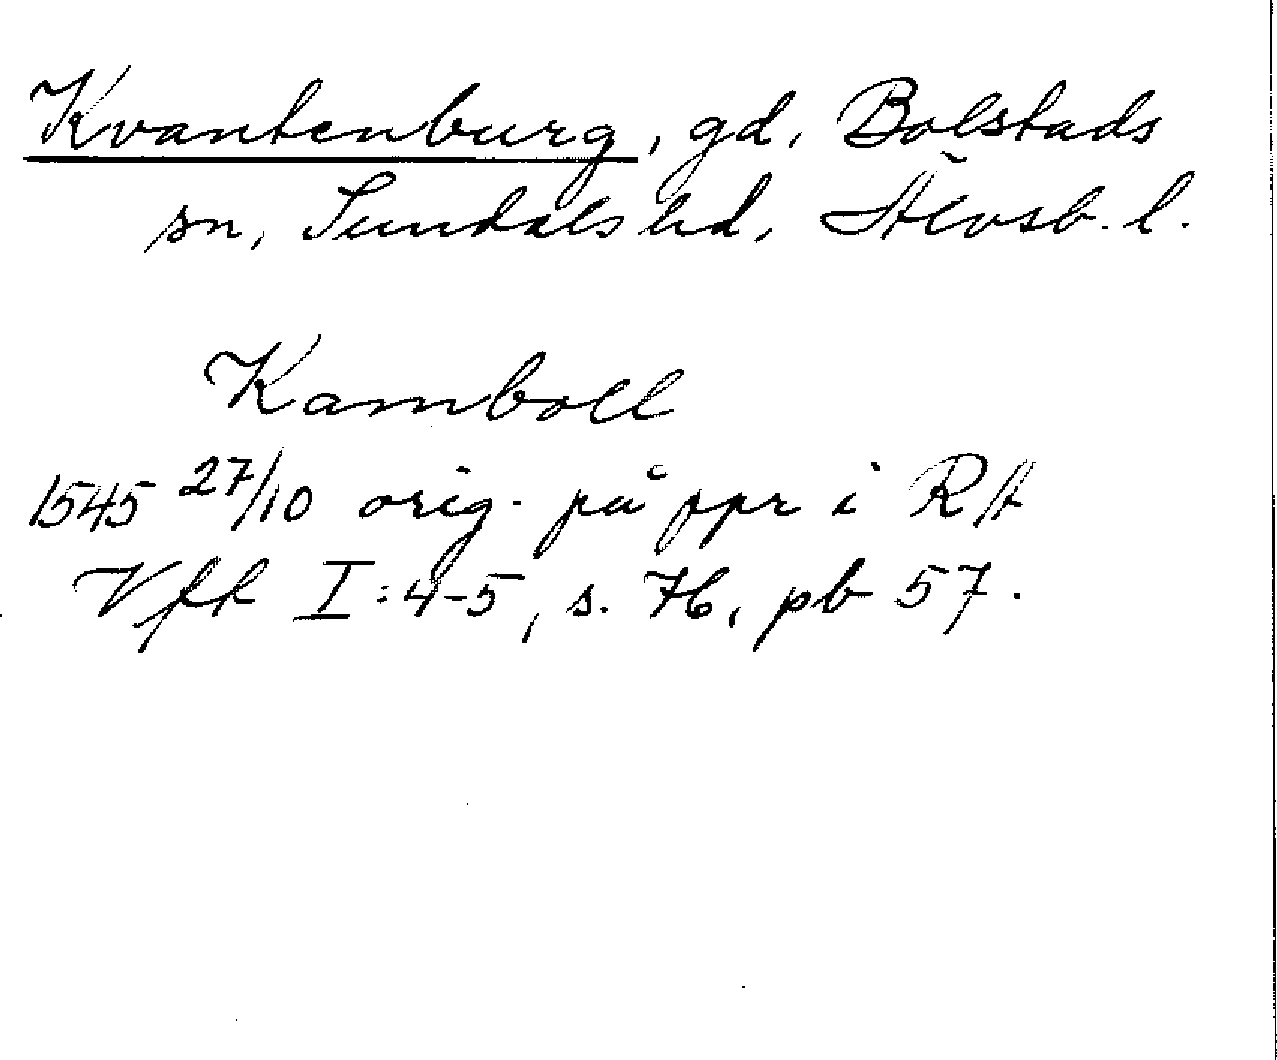 Kvantenburg, gd, Bolstads
sn, Sundals hd, Älvsb. l.
Kamboll
1545 27/10 orig. på ppr i RA
Vfk I:4-5, s. 76, pb 57.